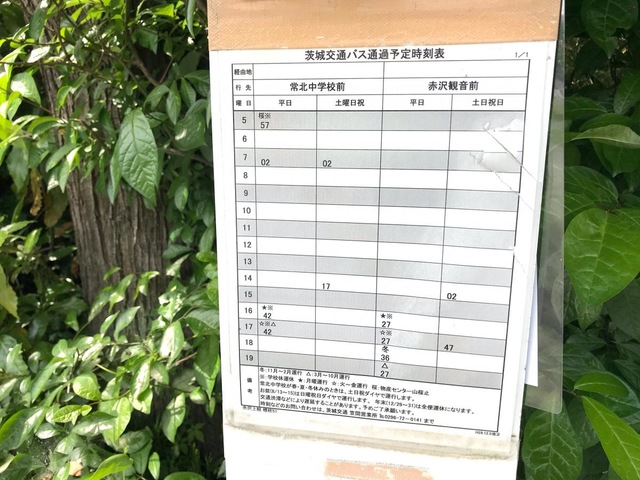 茨城交通バス通過予定時刻表 1/1
経由地
行先 常北中学校前 赤沢観音前
曜日 平日 土曜日祝 平日 土日祝日
5 桜※
57
6
7 02 02
8
9
10
11
12
13
14 17
15 02
16 ★※ ★※
42 27
17 ☆※△ ☆※
42 27
18 冬 47
36
19 △
27
備考
冬:11月~2月運行 △:3月~10月運行
※:学校休運休 ★:月曜運行 ☆:火~金運行 桜:物産センター山桜止
常北中学校が春・夏・冬休みのときは、土日祝ダイヤで運行します。
お盆(8/13~15)は日曜祝日ダイヤで運行します。 年末(12/29~31)は全便運休になります。
交通渋滞などにより遅延することがあります。予めご了承願います。
時刻などのお問い合わせは、茨城交通 笠間営業所 ℡0296-72-0141 まで